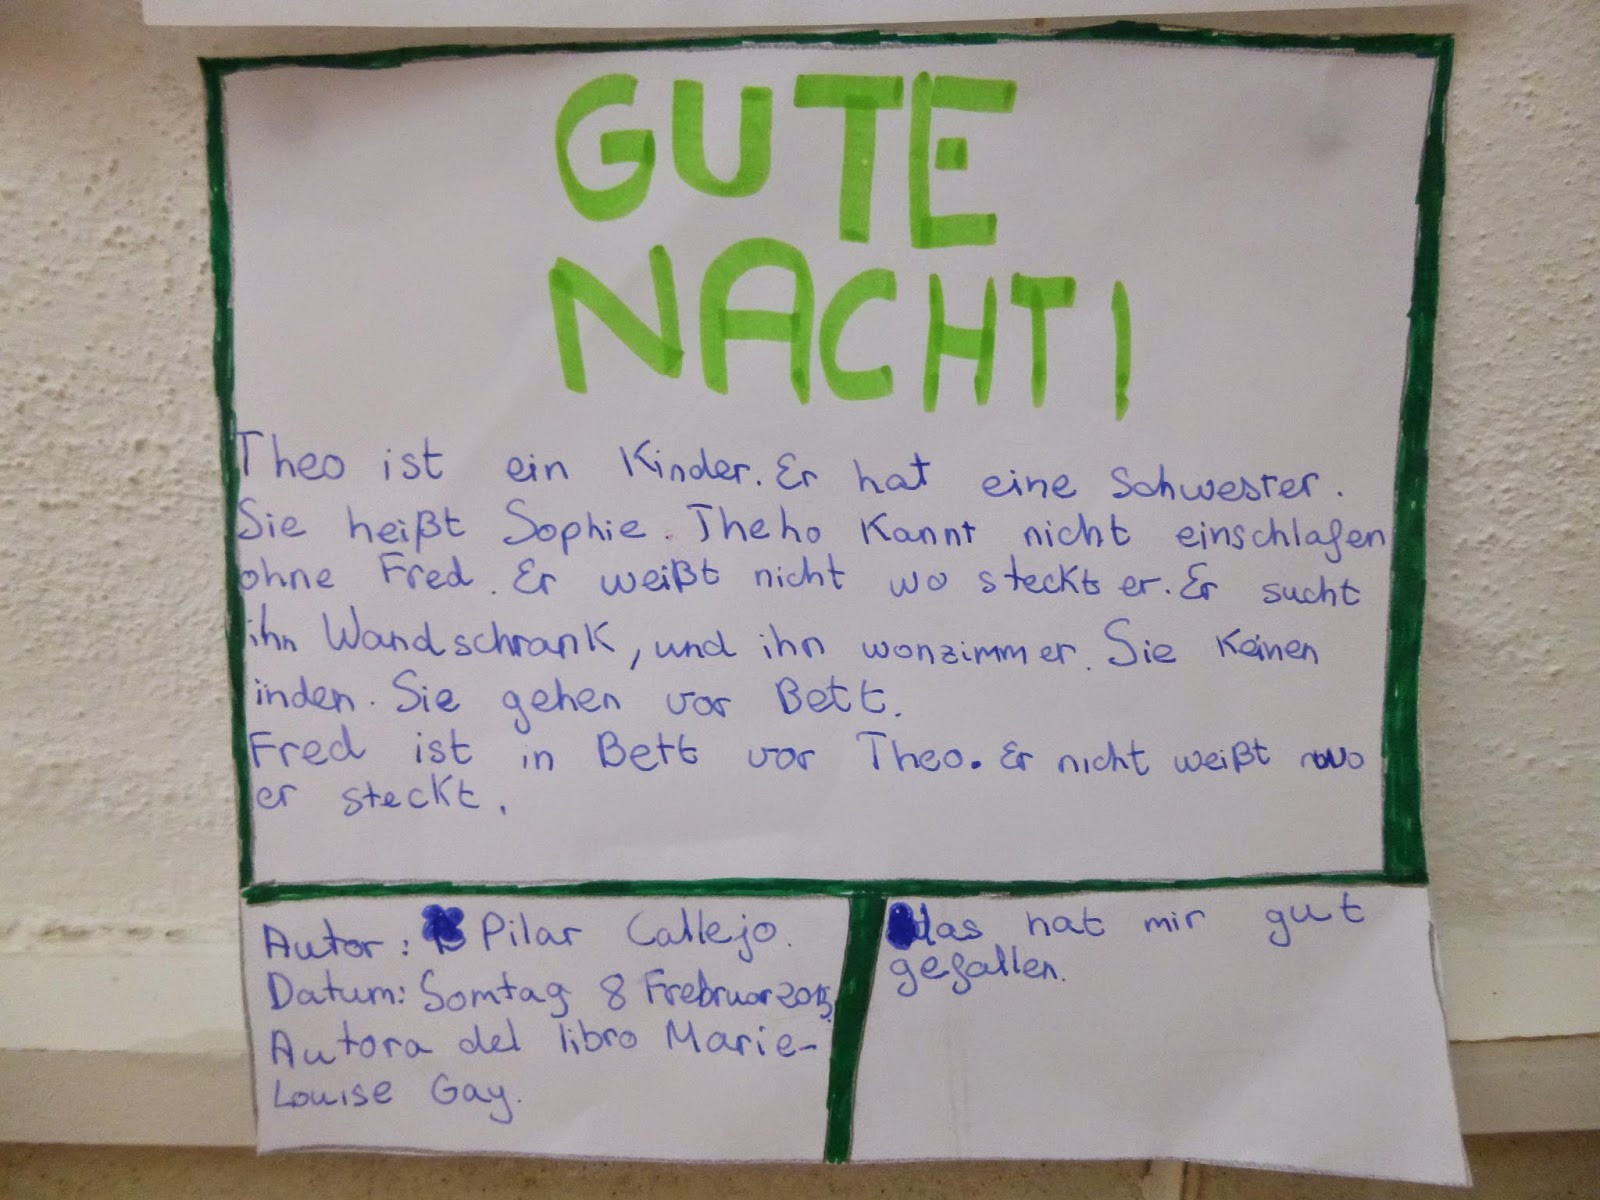 GUTE
NACHT!
Theo ist ein Kinder. Er hat eine Schwester.
Sie heißt Sophie. Theho Kannt nicht einschlafen
ohne Fred. Er weißt nicht wo steckts er. Er sucht
ihn Wandschrank, und ihn wonzimmer. Sie Keinen
inden. Sie gehen vor Bett.
Fred ist in Bett vor Theo. Er nicht weißt wo
er steckt.
Autor: Pilar Callejo.
Datum: Somtag 8 Frebruar 2015.
Autora del libro Marie-
Louise Gay.
das hat mir gut
gefallen.